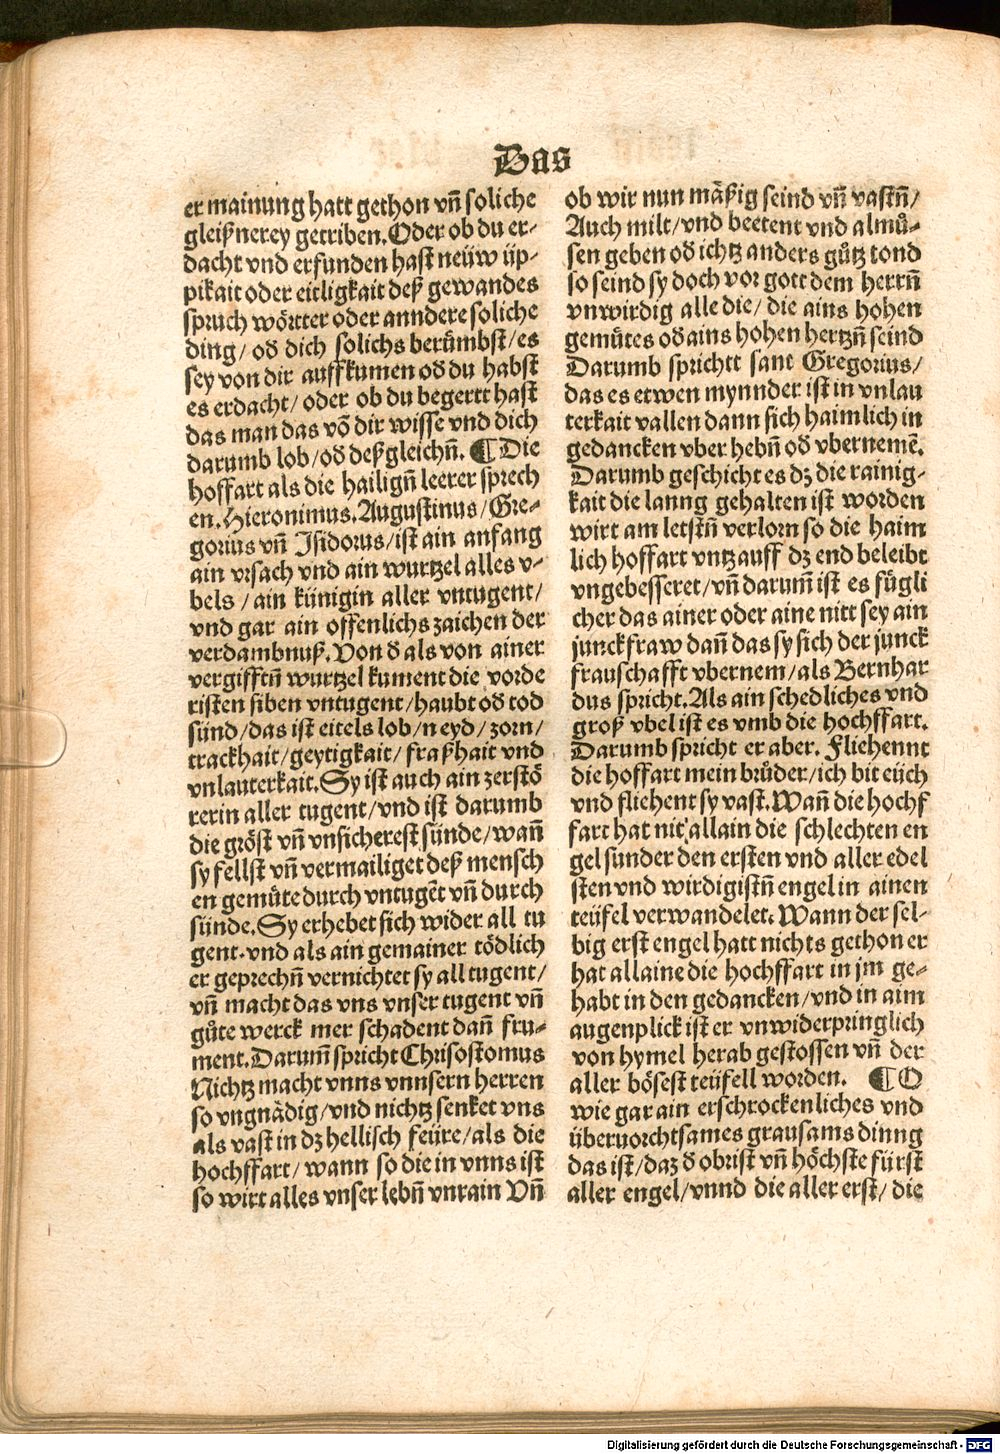 Das
er mainung hatt gethon vn̄ soliche
gleißnerey getriben. Oder ob du er-
dacht vnd erfunden hast neüw üp-
pikait oder eitligkait deß gewandes
spruch wörtter oder anndere soliche
ding/ oď dich solichs berůmbst/ es
sey von dir auffkumen oď du habst
es erdacht/ oder ob du begertt hast
das man das vō dir wisse vnd dich
darumb lob/ oď deßgleichn̄. ¶ Die
hoffart als die hailign̄ leerer sprech
en. Hieronimus. Augustinus/ Gre-
gorius vn̄ Isidorus/ ist ain anfang
ain vrsach vnd ain wurtzel alles v-
bels/ ain künigin aller vntugent/
vnd gar ain offenlichs zaichen der
verdambnuß. Von ď als von ainer
vergifftn̄ wurtzel kument die vorde
risten siben vntugent/ haubt oď tod
sünd/ das ist eitels lob/ neyd/ zorn/
trackhait/ geytigkait/ fraßhait vnd
vnlauterkait. Sy ist auch ain zerstö
rerin aller tugent/ vnd ist darumb
die gröst vn̄ vnsicherest sünde/ wan̄
sy fellst vn̄ vermailiget deß mensch
en gemůte durch vntugēt vn̄ durch
sünde. Sy erhebet sich wider all tu
gent. vnd als ain gemainer tödlich
er geprechn̄ vernichtet sy all tugent/
vn̄ macht das vns vnser tugent vn̄
gůte werck mer schadent dan̄ fru-
ment. Darum̄ spricht Chrisostomus
Nichtz macht vnns vnnsern herren
so vngnädig/ vnd nichtz senket vns
als vast in dz hellisch feüre/ als die
hochffart/ wann so die in vnns ist
so wirt alles vnser lebn̄ vnrain Vn̄
ob wir nun mäßig seind vn̄ vastn̄/
Auch milt/ vnd beetent vnd almů-
sen geben oď ichtz anders gůtz tond
so seind sy doch vor gott dem herrn̄
vnwirdig alle die/ die ains hohen
gemůtes oď ains hohen hertzn̄ seind
Darumb sprichtt sant Gregorius/
das es etwen mynnder ist in vnlau
terkait vallen dann sich haimlich in
gedancken vber hebn̄ oď vbernemē.
Darumb geschicht es dz die rainig-
kait die lanng gehalten ist worden
wirt am letstn̄ verlorn so die haim
lich hoffart vntz auff dz end beleibt
vngebesseret/ vn̄ darum̄ ist es fügli
cher das ainer oder aine nitt sey ain
junckfraw dan̄ das sy sich der junck
frauschafft vbernem/ als Bernhar
dus spricht. Als ain schedliches vnd
groß vbel ist es vmb die hochffart.
Darumb spricht er aber. Fliehennt
die hoffart mein brůder/ ich bit eüch
vnd fliehent sy vast. Wan̄ die hochf
fart hat nit allain die schlechten en
gel sunder den ersten vnd aller edel
sten vnd wirdigistn̄ engel in ainen
teüfel verwandelet. Wann der sel-
big erst engel hatt nichts gethon er
hat allaine die hochffart in jm ge-
habt in den gedancken/ vnd in aim
augenplick ist er vnwiderpringlich
von hymel herab gestossen vn̄ der
aller bösest teüfell worden. ¶ O
wie gar ain erschrockenliches vnd
überuorchtsames grausams dinng
das ist/ daz ď obrist vn̄ höchste fürst
aller engel/ vnnd die aller erst/ die
Digitalisierung gefördert durch die Deutsche Forschungsgemeinschaft - DFG